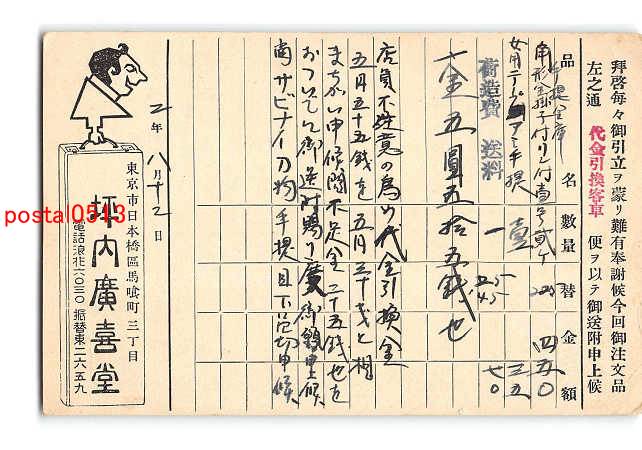 拝啓毎々御引立ヲ蒙リ難有奉謝候今回御注文品
左之通 代金引換客車 便ヲ以テ御送附申上候
品名 數量 替 金額
手提金庫
角形 掛子付リン付壹号貳ケ 225 四五〇
女用テープアミ手提 壹 三五
荷造費 送料 一 25 45 七〇
一金五圓五拾五銭也
店員不注意の為め代金引換金
五円五十五銭を五円三十銭と相
まちがい申候間不足金二十五銭也を
おついでに御送附賜り度御願申上候
尚サビナイ刃物手提目下品切申候
二年 八月十二日
東京市日本橋區馬喰町三丁目
坪内廣喜堂
電話浪花六〇三〇 振替東二六五九
postal0513